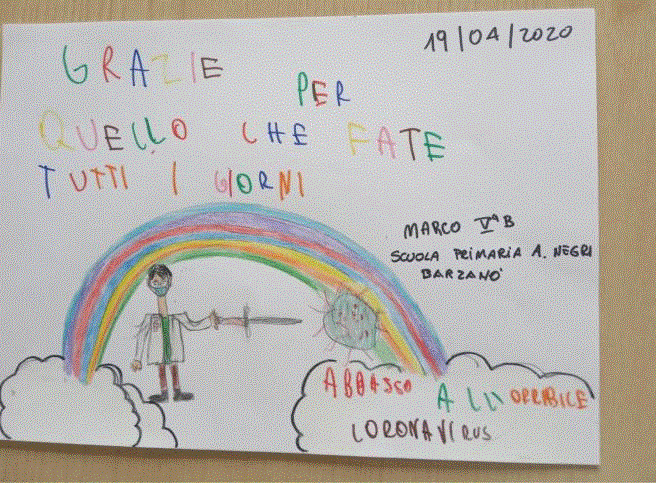 19/04/2020
GRAZIE
PER
QUELLO CHE FATE
TUTTI I GIORNI
MARCO Vª B
SCUOLA PRIMARIA A. NEGRI
BARZANO'
ABBASSO
ORRIBILE
CORONAVIRUS